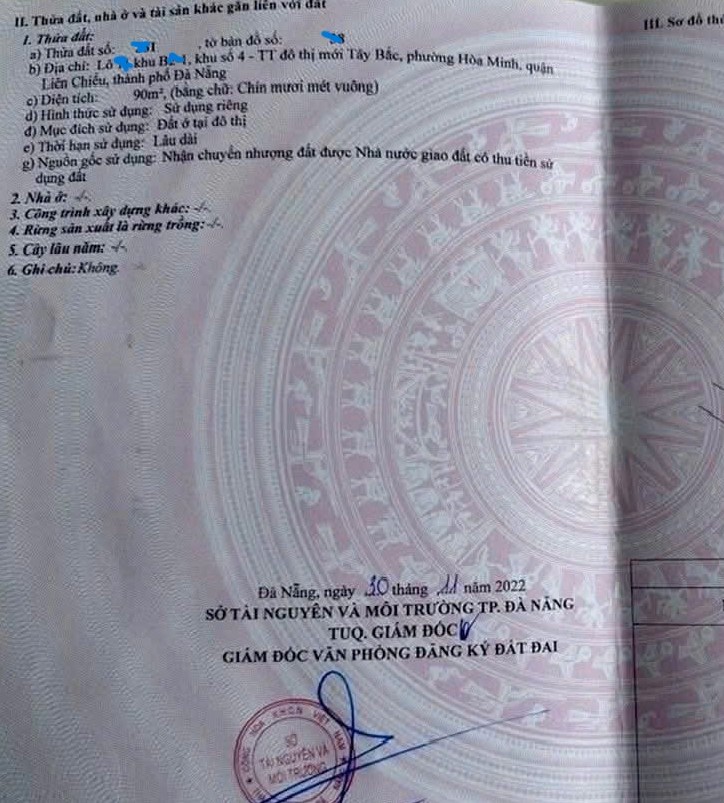 II. Thửa đất, nhà ở và tài sản khác gắn liền với đất
III. Sơ đồ
1. Thửa đất:
a) Thửa đất số: , tờ bản đồ số:
b) Địa chỉ: Lô , khu , khu số 4 - TT đô thị mới Tây Bắc, phường Hòa Minh, quận
Liên Chiểu, thành phố Đà Nẵng
c) Diện tích: 90m², (bằng chữ: Chín mươi mét vuông)
d) Hình thức sử dụng: Sử dụng riêng
đ) Mục đích sử dụng: Đất ở tại đô thị
e) Thời hạn sử dụng: Lâu dài
g) Nguồn gốc sử dụng: Nhận chuyển nhượng đất được Nhà nước giao đất có thu tiền sử
dụng đất
2. Nhà ở: -/-.
3. Công trình xây dựng khác: -/-.
4. Rừng sản xuất là rừng trồng: -/-.
5. Cây lâu năm: -/-.
6. Ghi chú: Không.
Đà Nẵng, ngày 30 tháng 11 năm 2022
SỞ TÀI NGUYÊN VÀ MÔI TRƯỜNG TP. ĐÀ NẴNG
TUQ. GIÁM ĐỐC
GIÁM ĐỐC VĂN PHÒNG ĐĂNG KÝ ĐẤT ĐAI
SỞ
TÀI NGUYÊN VÀ
MÔI TRƯỜNG